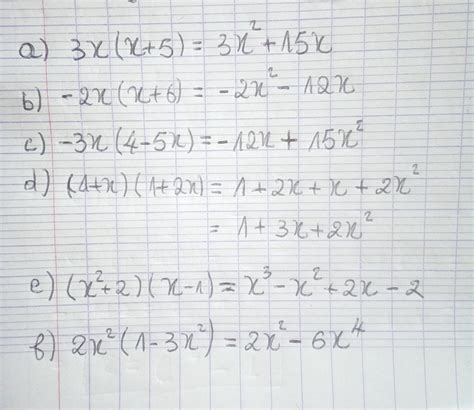 a) 3x(x+5) = 3x²+15x
b) -2x(x+6) = -2x²-12x
c) -3x(4-5x) = -12x + 15x²
d) (1+x)(1+2x) = 1+2x+x+2x²
= 1+3x+2x²
e) (x²+2)(x-1) = x³-x²+2x-2
f) 2x²(1-3x²) = 2x²-6x⁴